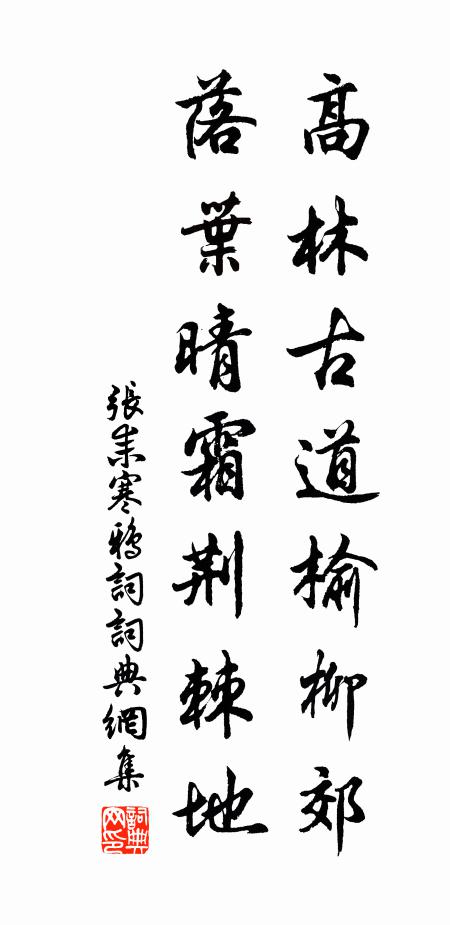 高林古道榆柳郊
落葉晴霜荆棘地
張耒寒鴉詞詞典網集
詞典
网印